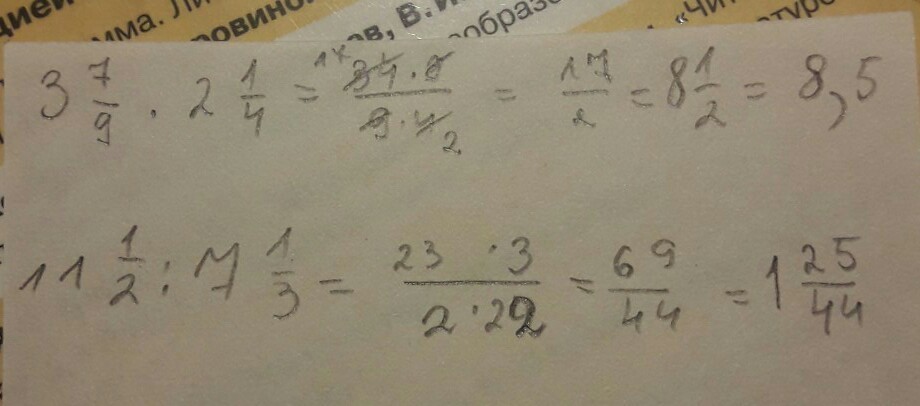 цией
мма. Ли
ровино
ов, В. И
ообразо
. «Чит
атуро
3 7/9 · 2 1/4 = 17 34 · 9 / 9 · 4 2 = 17/2 = 8 1/2 = 8,5
11 1/2 : 7 1/3 = 23 · 3 / 2 · 22 = 69/44 = 1 25/44